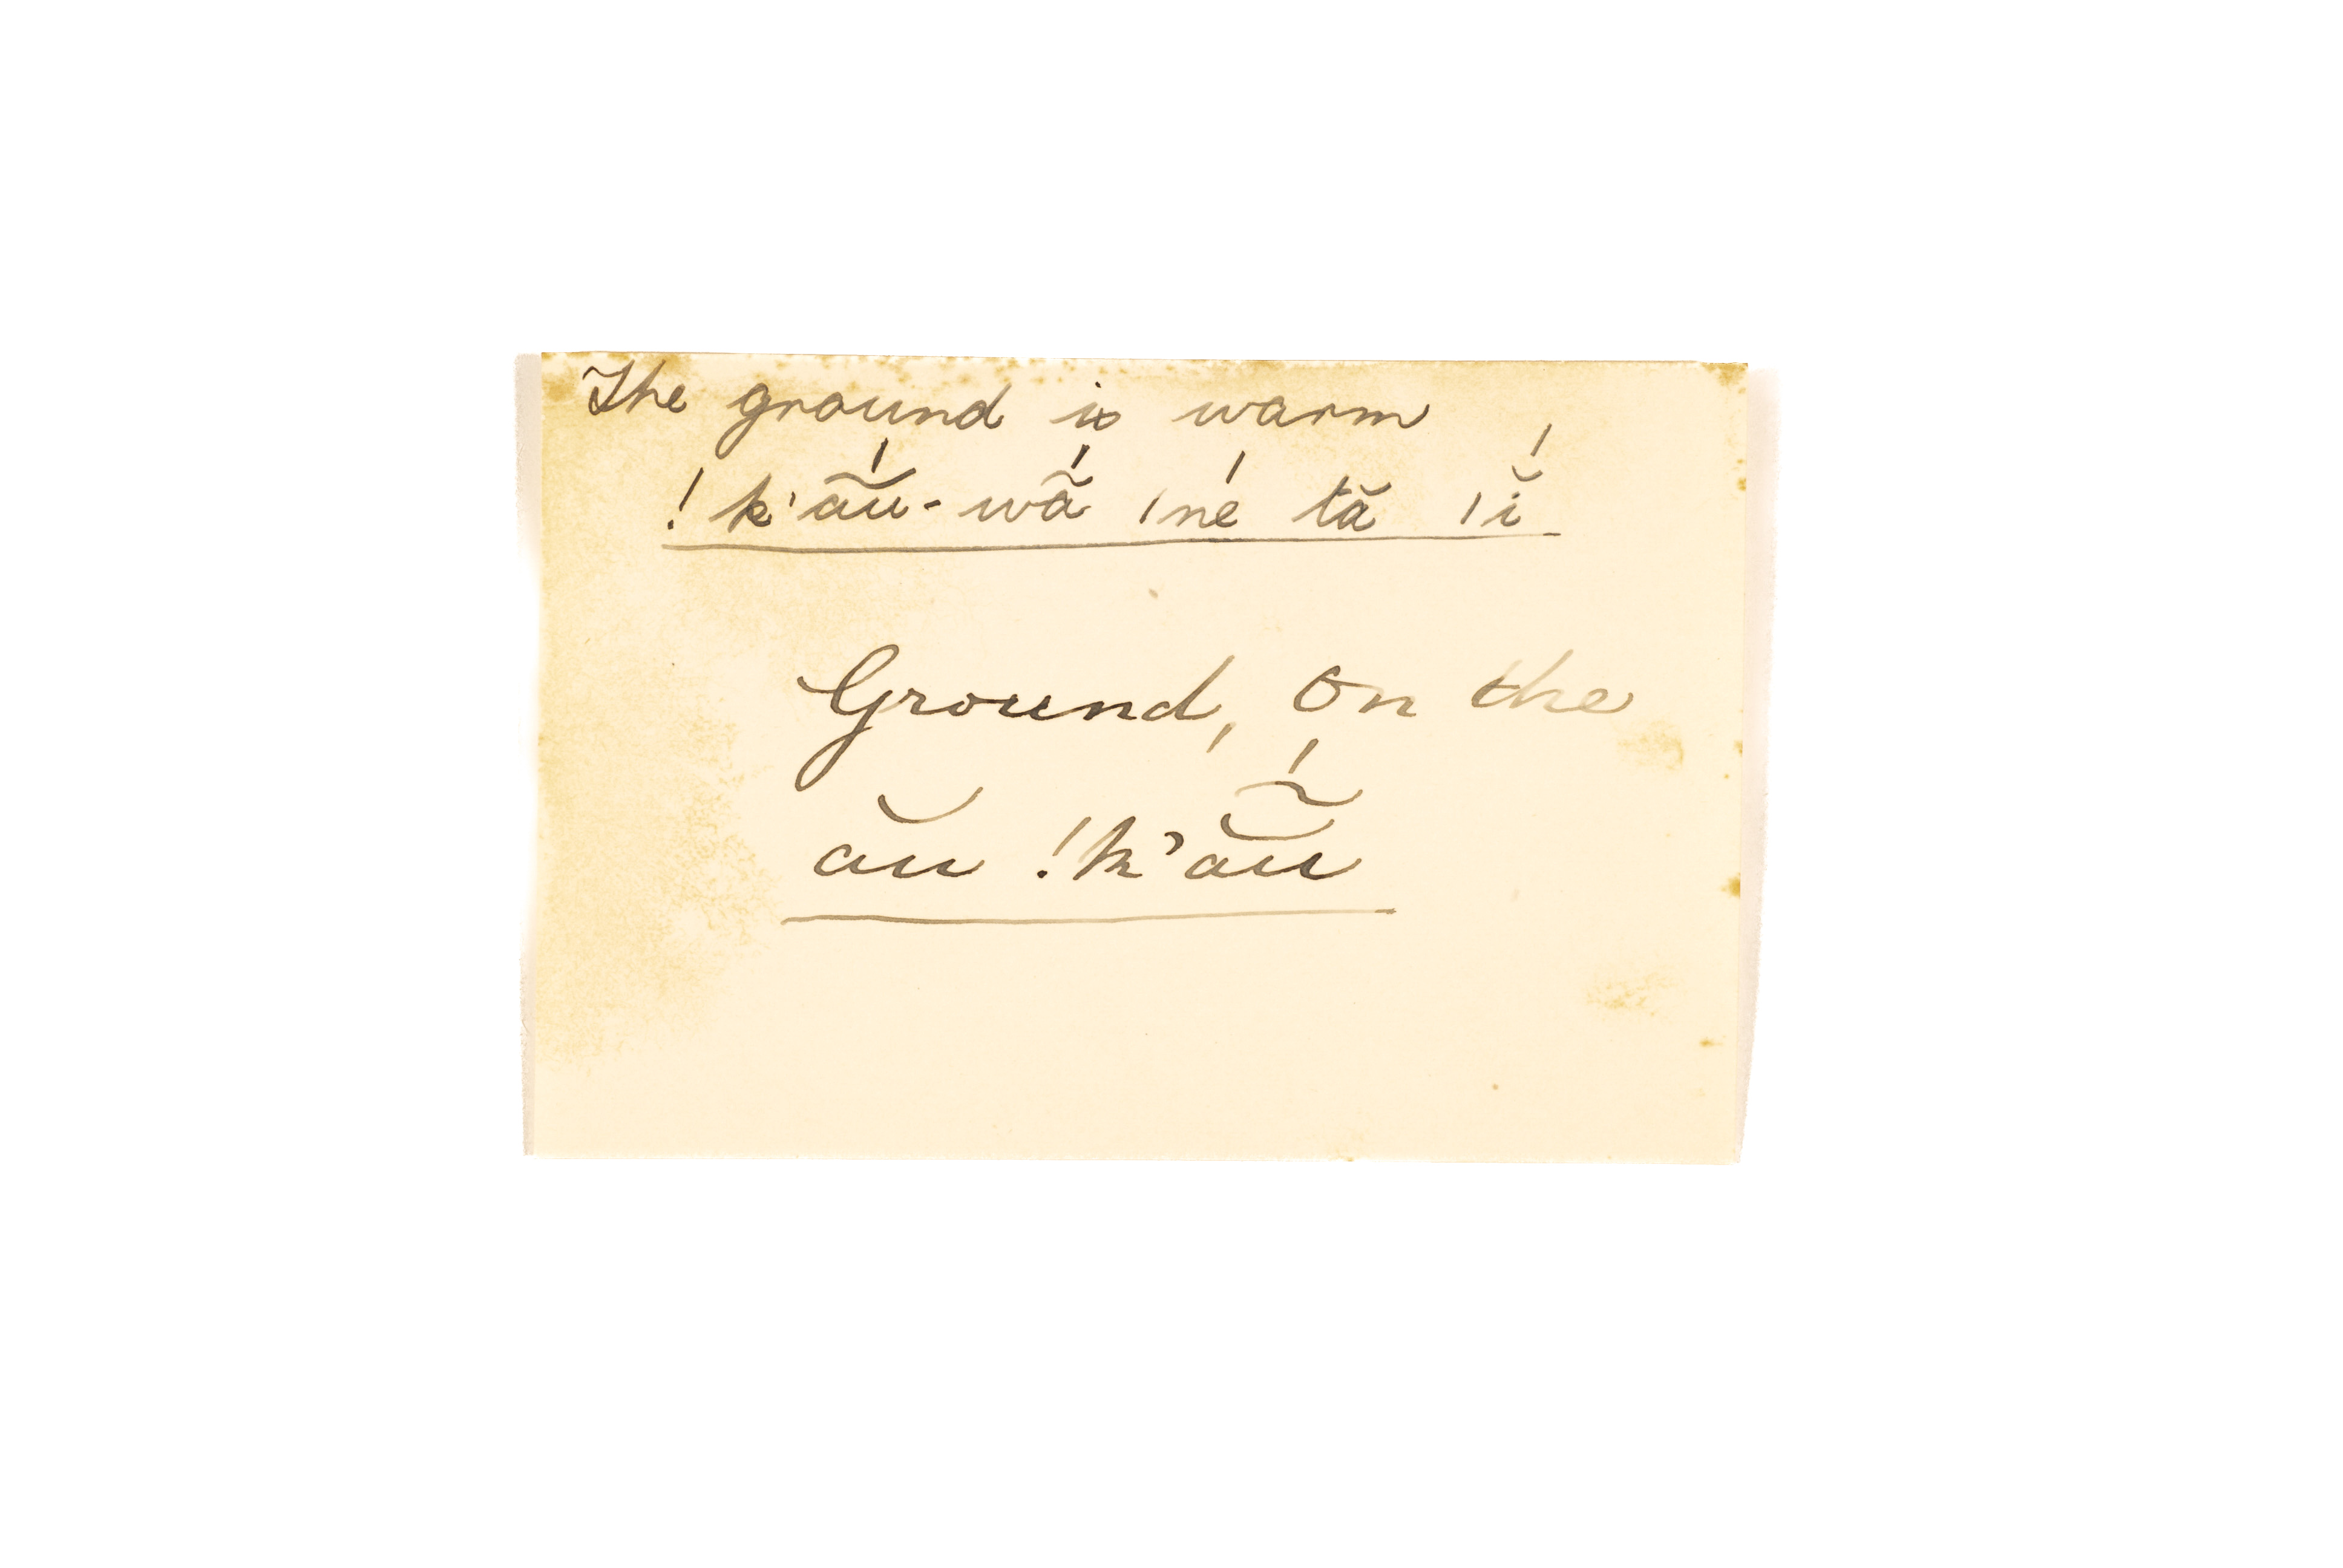 The ground is warm
!k'ã̆́ŭ-wã́ |né tă |ĭ́
Ground, on the
ău !k'ã̆́ŭ